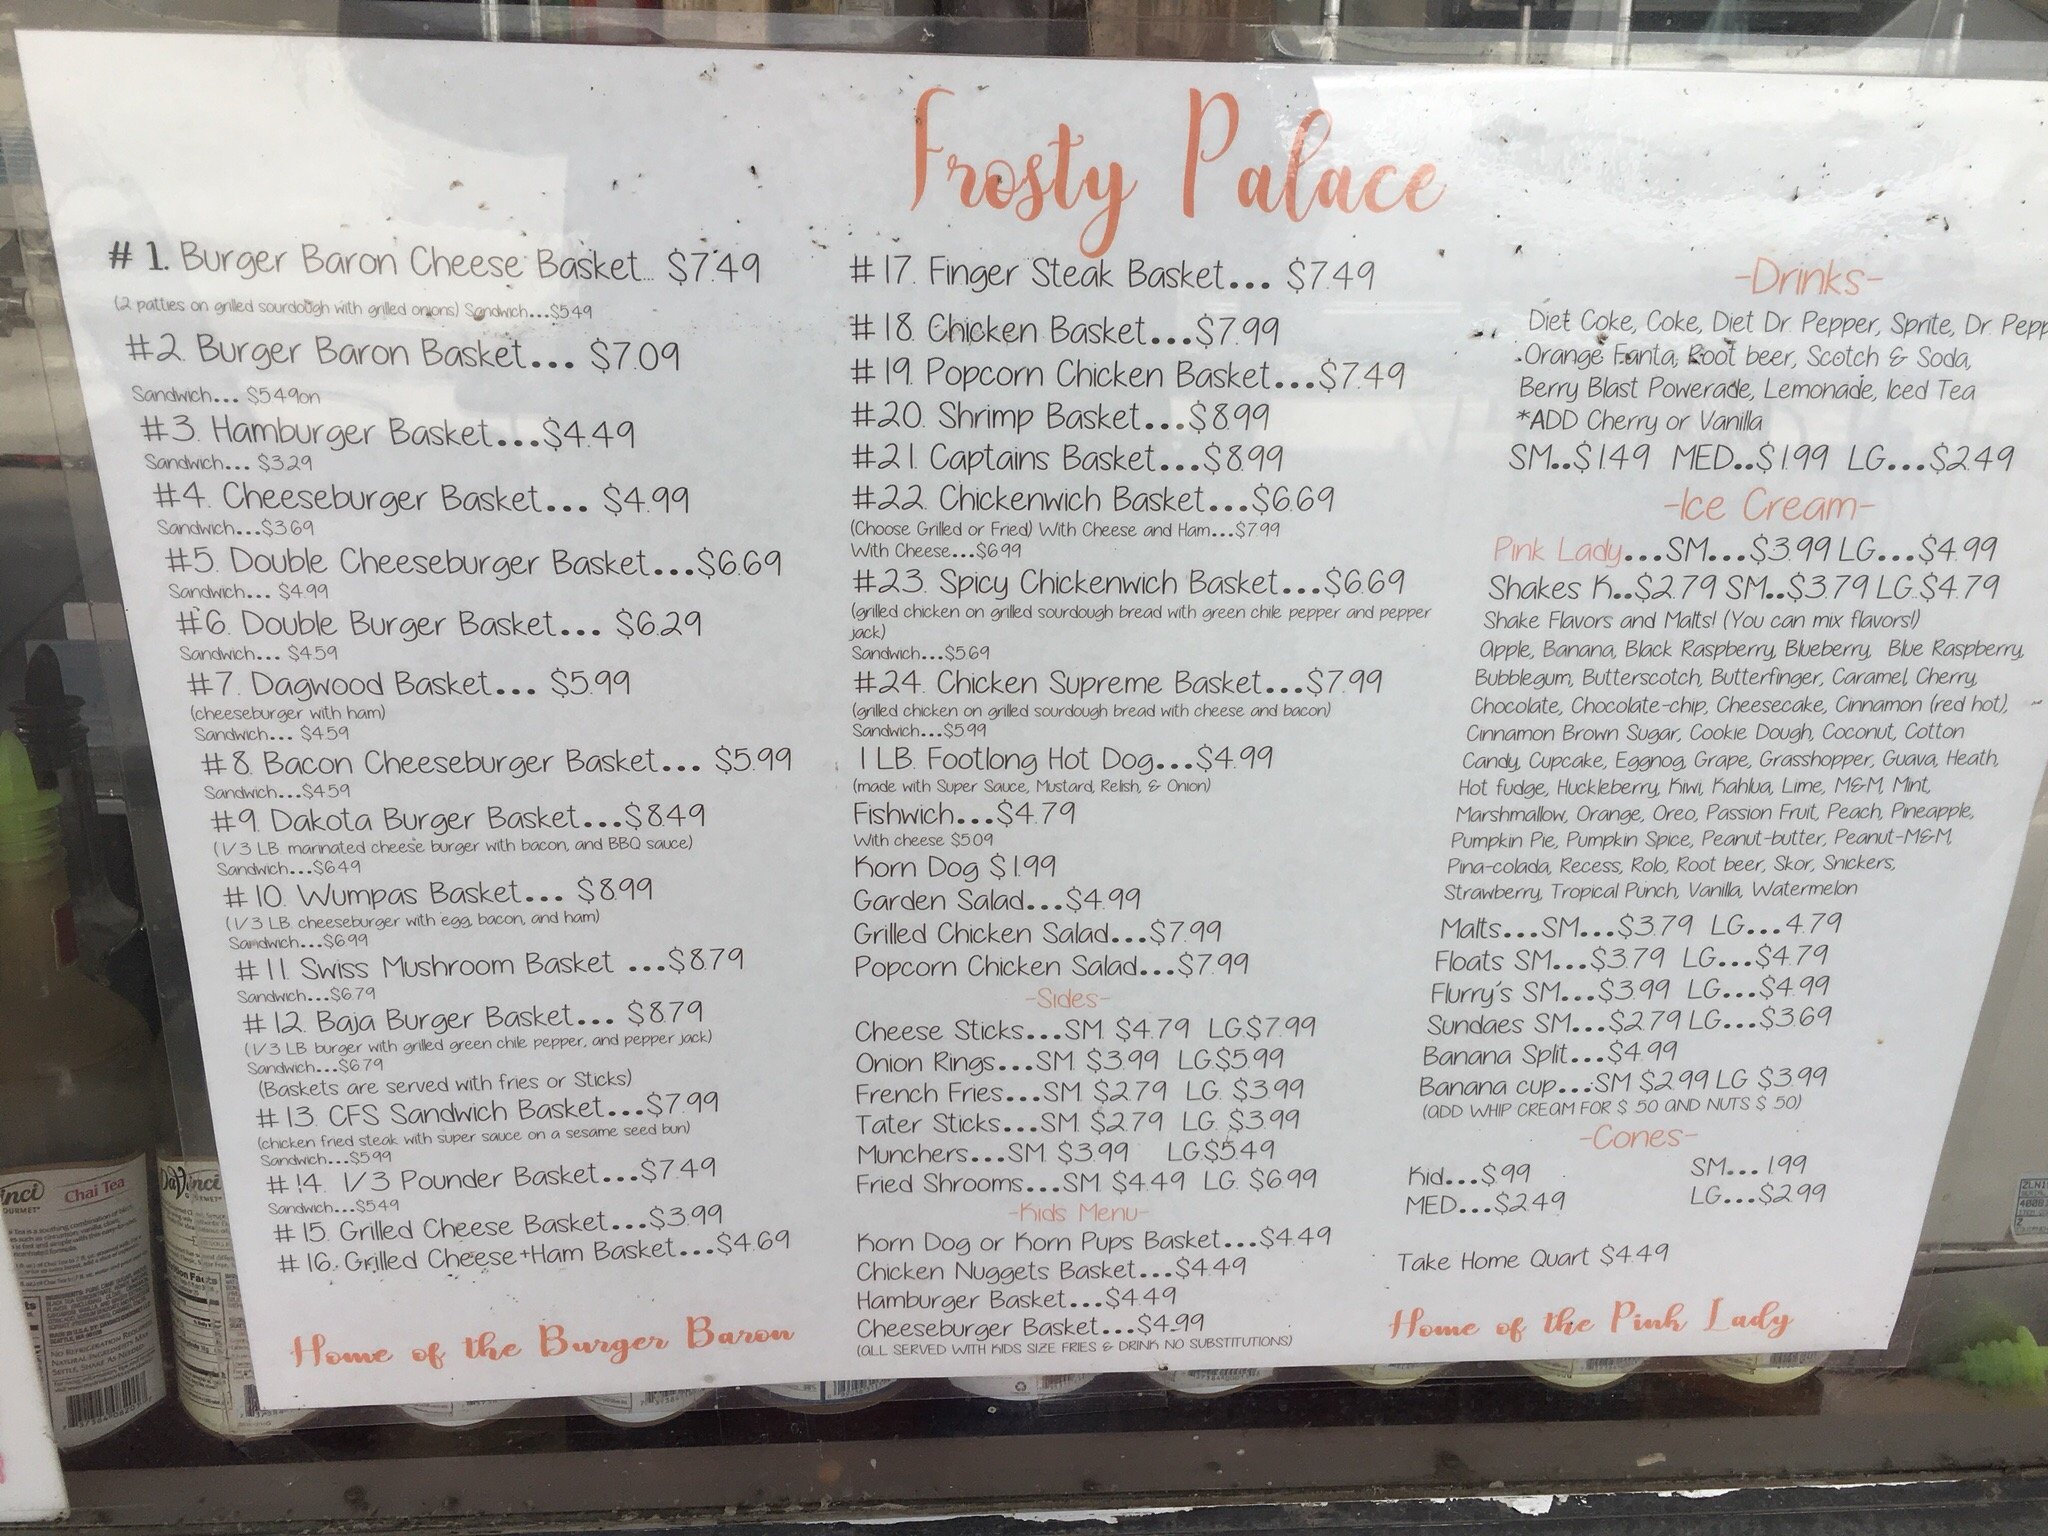 Frosty Palace
# 1. Burger Baron Cheese Basket... $7.49
(2 patties on grilled sourdough with grilled onions) Sandwich...$5.49
#2. Burger Baron Basket... $7.09
Sandwich... $5.49on
#3. Hamburger Basket...$4.49
Sandwich... $3.29
#4. Cheeseburger Basket... $4.99
Sandwich...$3.69
#5. Double Cheeseburger Basket...$6.69
Sandwich... $4.99
#6. Double Burger Basket... $6.29
Sandwich... $4.59
#7. Dagwood Basket... $5.99
(cheeseburger with ham)
Sandwich... $4.59
#8. Bacon Cheeseburger Basket... $5.99
Sandwich...$4.59
#9. Dakota Burger Basket...$8.49
(1/3 LB. marinated cheese burger with bacon, and BBQ sauce)
Sandwich...$6.49
# 10. Wumpas Basket... $8.99
(1/3 LB. cheeseburger with egg, bacon, and ham)
Sandwich...$6.99
# 11. Swiss Mushroom Basket ...$8.79
Sandwich...$6.79
# 12. Baja Burger Basket... $8.79
(1/3 LB. burger with grilled green chile pepper, and pepper jack)
Sandwich...$6.79
(Baskets are served with fries or Sticks)
# 13. CFS Sandwich Basket...$7.99
(chicken fried steak with super sauce on a sesame seed bun)
Sandwich...$5.99
# !4. 1/3 Pounder Basket...$7.49
Sandwich...$5.49
# 15. Grilled Cheese Basket...$3.99
# 16. Grilled Cheese+Ham Basket...$4.69
Home of the Burger Baron
# 17. Finger Steak Basket... $7.49
# 18. Chicken Basket...$7.99
# 19. Popcorn Chicken Basket...$7.49
#20. Shrimp Basket...$8.99
#21. Captains Basket...$8.99
#22. Chickenwich Basket...$6.69
(Choose Grilled or Fried) With Cheese and Ham...$7.99
With Cheese...$6.99
#23. Spicy Chickenwich Basket...$6.69
(grilled chicken on grilled sourdough bread with green chile pepper and pepper
jack)
Sandwich...$5.69
#24. Chicken Supreme Basket...$7.99
(grilled chicken on grilled sourdough bread with cheese and bacon)
Sandwich...$5.99
1 LB. Footlong Hot Dog...$4.99
(made with Super Sauce, Mustard, Relish, & Onion)
Fishwich...$4.79
With cheese $5.09
Korn Dog $1.99
Garden Salad...$4.99
Grilled Chicken Salad...$7.99
Popcorn Chicken Salad...$7.99
-Sides-
Cheese Sticks...SM. $4.79 LG.$7.99
Onion Rings...SM. $3.99 LG.$5.99
French Fries...SM. $2.79 LG. $3.99
Tater Sticks...SM. $2.79 LG. $3.99
Munchers...SM. $3.99 LG.$5.49
Fried Shrooms...SM. $4.49 LG. $6.99
-Kids Menu-
Korn Dog or Korn Pups Basket...$4.49
Chicken Nuggets Basket...$4.49
Hamburger Basket...$4.49
Cheeseburger Basket...$4.99
(ALL SERVED WITH KIDS SIZE FRIES & DRINK NO SUBSTITUTIONS)
-Drinks-
Diet Coke, Coke, Diet Dr. Pepper, Sprite, Dr. Pepp
Orange Fanta, Root beer, Scotch & Soda,
Berry Blast Powerade, Lemonade, Iced Tea
*ADD Cherry or Vanilla
SM..$1.49 MED..$1.99 LG...$2.49
-Ice Cream-
Pink Lady...SM...$3.99 LG...$4.99
Shakes K..$2.79 SM..$3.79 LG.$4.79
Shake Flavors and Malts! (You can mix flavors!)
Apple, Banana, Black Raspberry, Blueberry, Blue Raspberry,
Bubblegum, Butterscotch, Butterfinger, Caramel, Cherry,
Chocolate, Chocolate-chip, Cheesecake, Cinnamon (red hot),
Cinnamon Brown Sugar, Cookie Dough, Coconut, Cotton
Candy, Cupcake, Eggnog, Grape, Grasshopper, Guava, Heath,
Hot fudge, Huckleberry, Kiwi, Kahlua, Lime, M&M, Mint,
Marshmallow, Orange, Oreo, Passion Fruit, Peach, Pineapple,
Pumpkin Pie, Pumpkin Spice, Peanut-butter, Peanut-M&M,
Pina-colada, Recess, Rolo, Root beer, Skor, Snickers,
Strawberry, Tropical Punch, Vanilla, Watermelon
Malts...SM...$3.79 LG...4.79
Floats SM...$3.79 LG...$4.79
Flurry's SM...$3.99 LG...$4.99
Sundaes SM...$2.79 LG...$3.69
Banana Split...$4.99
Banana cup...SM $2.99 LG $3.99
(ADD WHIP CREAM FOR $ .50 AND NUTS $ .50)
-Cones-
Kid...$.99 SM... 1.99
MED...$2.49 LG...$2.99
Take Home Quart $4.49
Home of the Pink Lady
Chai Tea
DaVinci